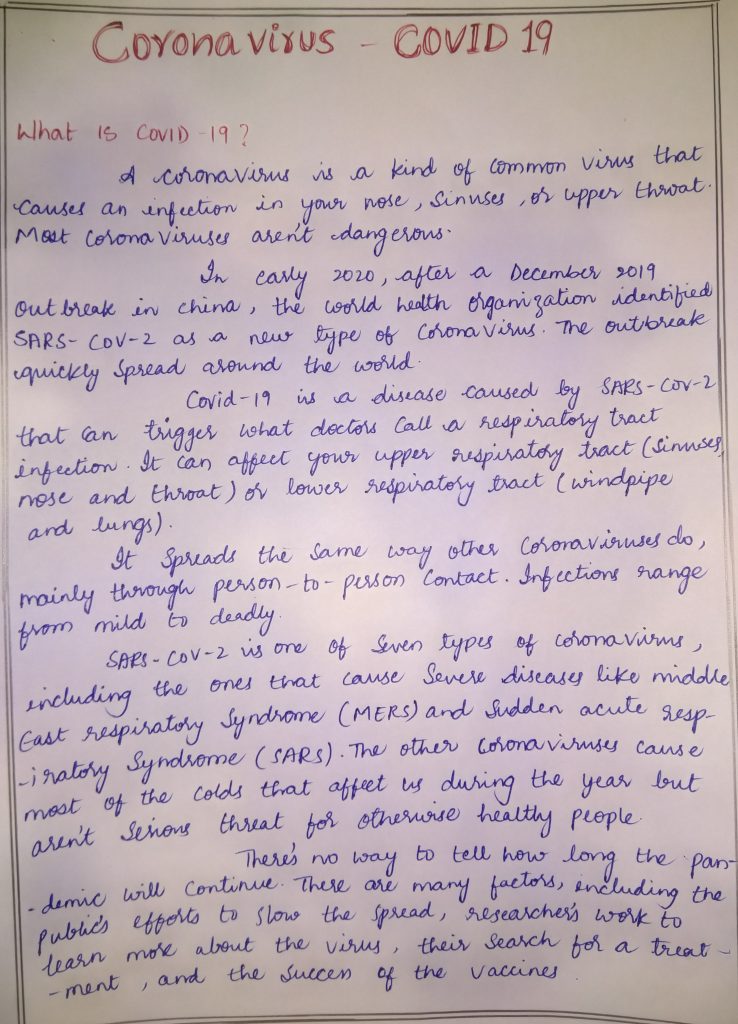 Coronavirus - COVID 19
What is COVID-19?
A coronavirus is a kind of common virus that
causes an infection in your nose, Sinuses, or upper throat.
Most Corona Viruses aren't dangerous.
In early 2020, after a December 2019
Out break in china, the world health organization identified
SARS-COV-2 as a new type of Corona Virus. The outbreak
quickly Spread around the world.
Covid-19 is a disease caused by SARS-Cov-2
that can trigger what doctors call a respiratory tract
infection. It can affect your upper respiratory tract (Sinuses,
nose and throat) or lower respiratory tract (windpipe
and lungs).
It Spreads the Same way other Coronaviruses do,
mainly through person-to-person Contact. Infections range
from mild to deadly.
SARS-COV-2 is one of Seven types of coronavirus,
including the ones that cause Severe diseases like middle
East respiratory Syndrome (MERS) and Sudden acute resp-
-iratory Syndrome (SARS). The other coronaviruses cause
most of the colds that affect us during the year but
aren't Serious threat for otherwise healthy people.
There's no way to tell how long the pan-
-demic will Continue. There are many factors, including the
public's efforts to slow the spread, researcher's work to
learn more about the virus, their Search for a treat-
-ment, and the Success of the vaccines.